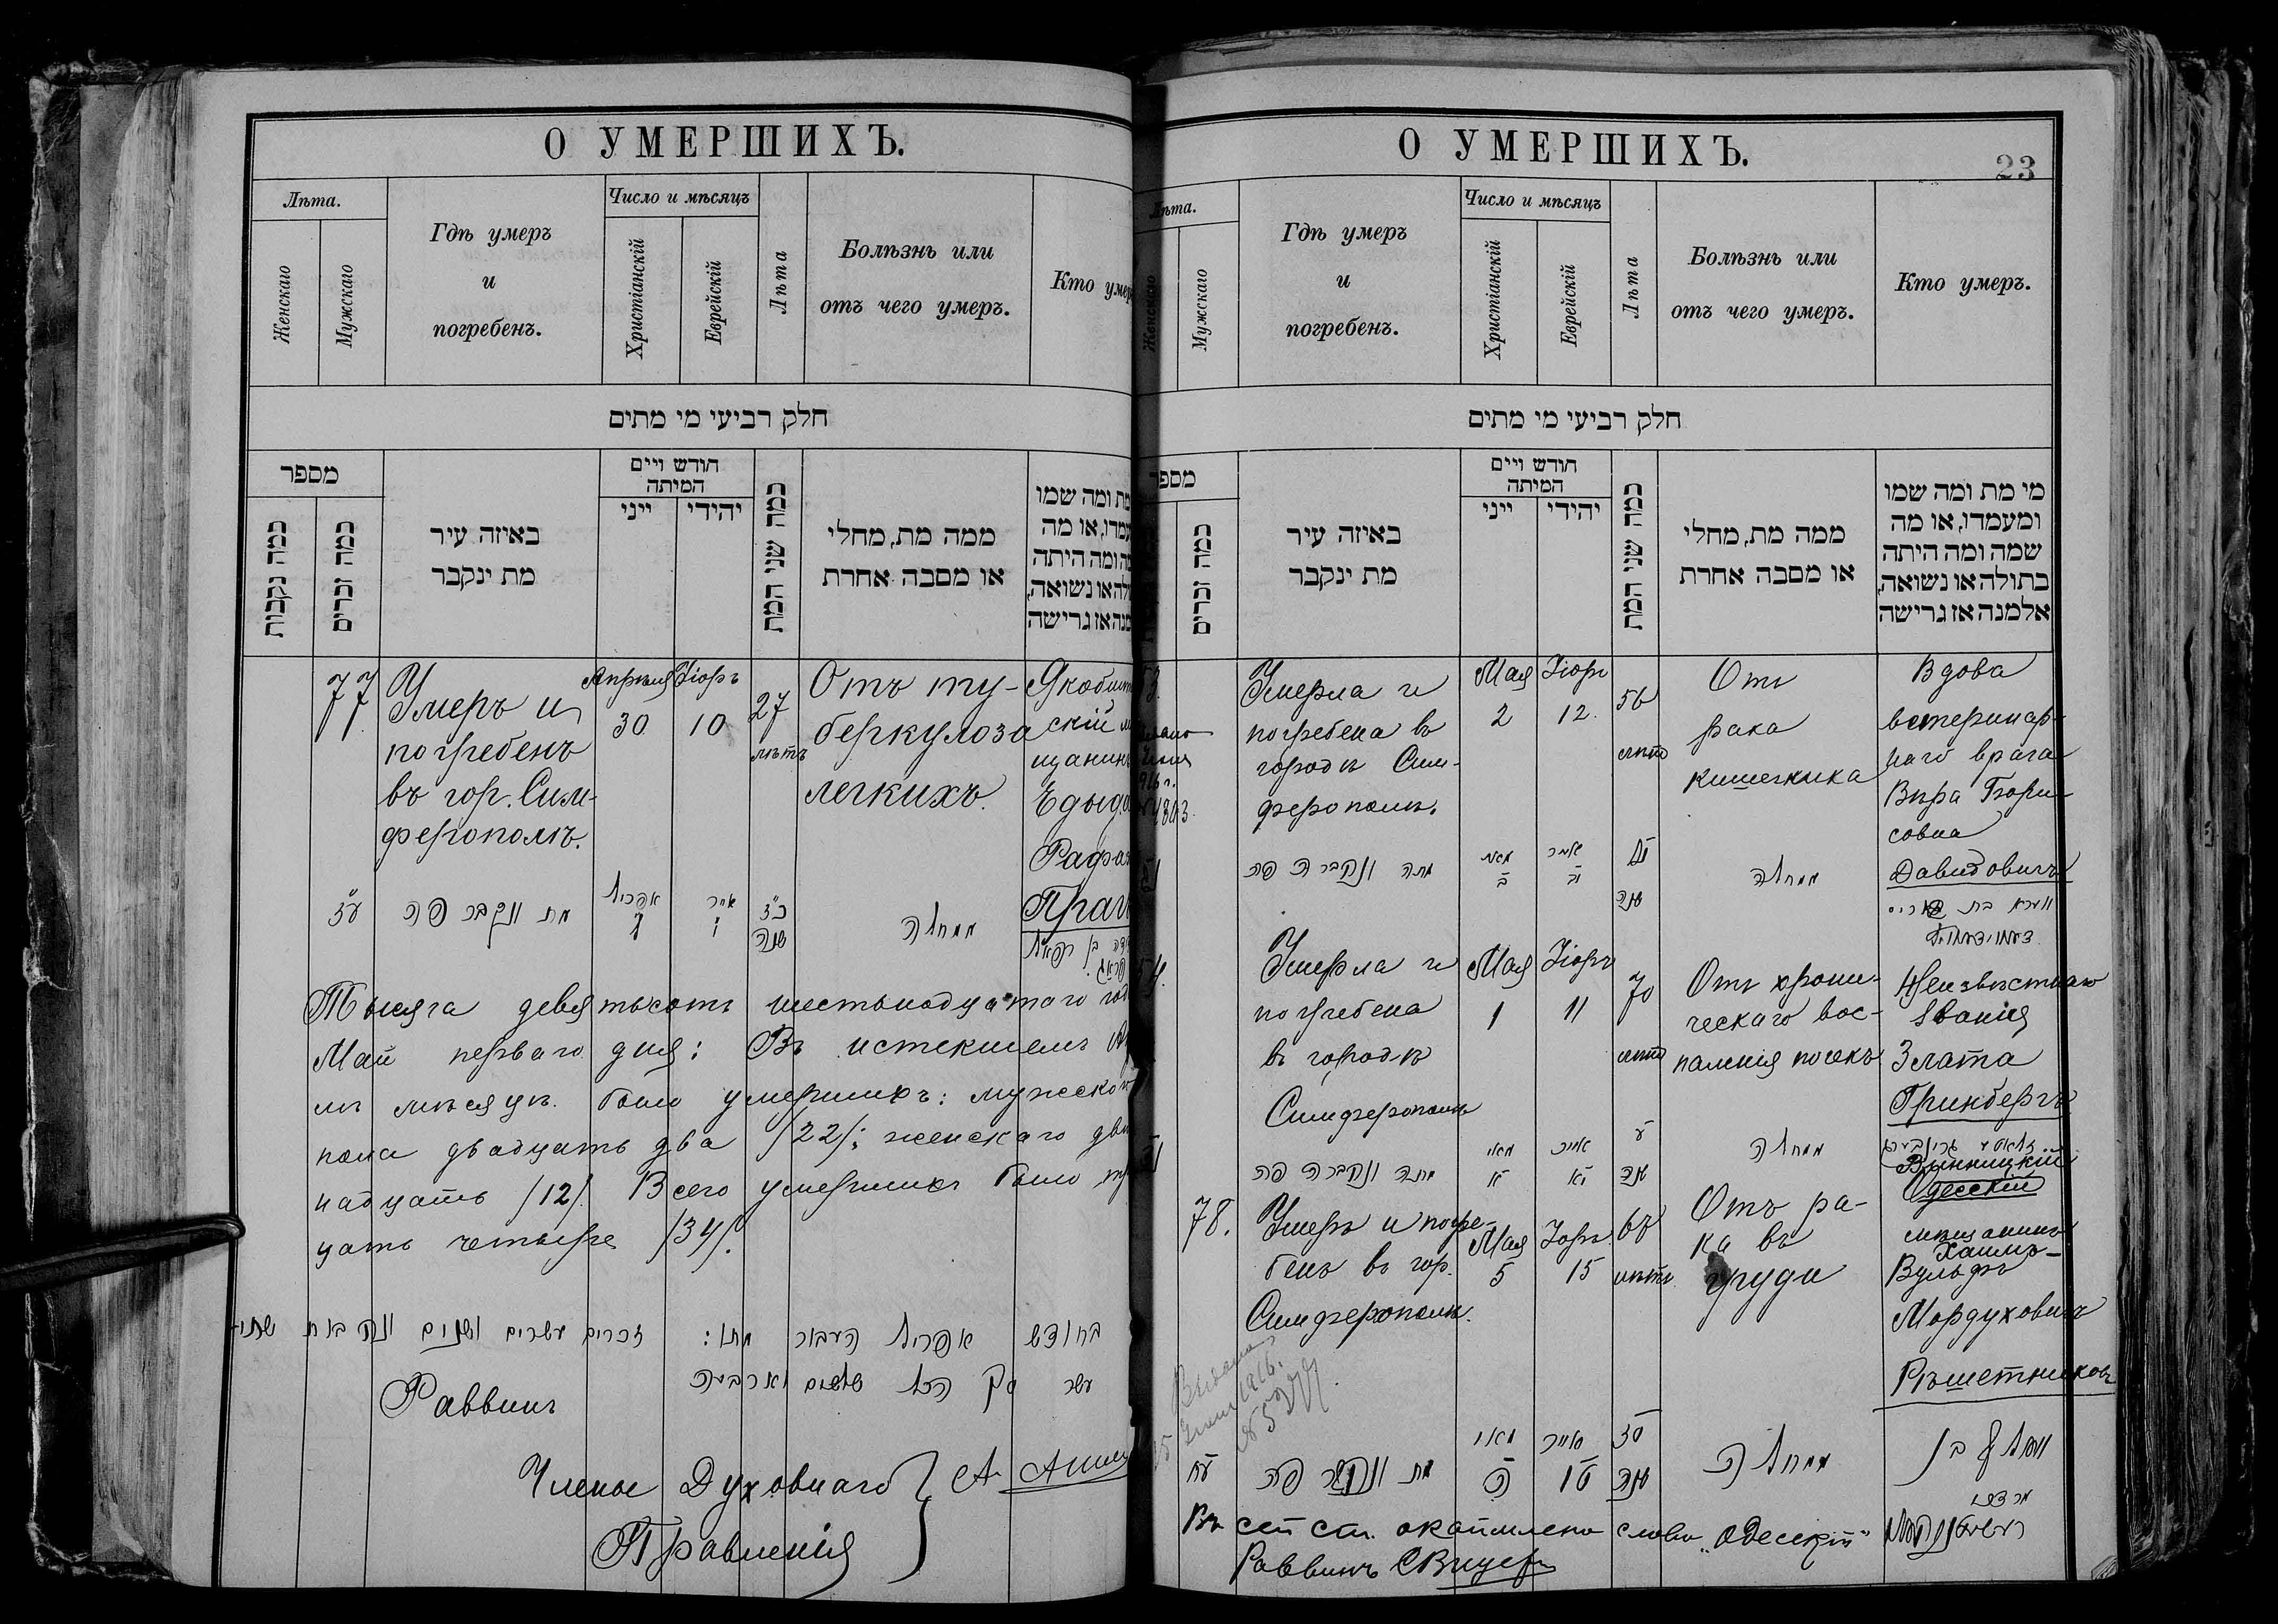 О УМЕРШИХЪ.
Лѣта.
Женскаго
Мужскаго
Гдѣ умеръ
и
погребенъ.
Число и мѣсяцъ
Христіанскій
Еврейскій
Лѣта
Болѣзнь или
отъ чего умеръ.
Кто умер
חלק רביעי מי מתים
מספר
כמה נקבות
כמה זכרים
באיזה עיר
מת ינקבר
חודש ויים
המיתה
ייני
יהידי
כמה שני המת
ממה מת, מחלי
או מסבה אחרת
מת ומה שמו
עמדו, או מה
מה ומה היתה
ולה או נשואה,
מנה אז גרישה
77
Умеръ и
погребенъ
въ гор. Сим-
ферополѣ.
Апрѣля
30
Іюръ
10
27
лѣтъ
Отъ ту-
беркулоза
легкихъ.
Якобшт
скій м
щанинъ
Рафа
מת ונקבר פה
אפריל
אייר
שנה
ממחלה
Тысяча девятьсотъ шестьнадцатаго год
Май перваго дня: Въ истекшемъ Ап
лѣ мѣсяцѣ было умершихъ: мужско
пола двадцать два /22/; женскаго дв
надцать /12/. Всего умершихъ было тр
цать четыре /34/.
בחודש אפריל העבור מתו: זכרים עשרים ושנים ונקבות שתי
עשר סך הכל שלשים וארבעה
Раввинъ
Члены Духовнаго
Правленія
О УМЕРШИХЪ.
23
Лѣта.
Женскаго
Мужскаго
Гдѣ умеръ
и
погребенъ.
Число и мѣсяцъ
Христіанскій
Еврейскій
Лѣта
Болѣзнь или
отъ чего умеръ.
Кто умеръ.
חלק רביעי מי מתים
מספר
כמה זכרים
באיזה עיר
מת ינקבר
חודש ויים
המיתה
ייני
יהידי
כמה שני המת
ממה מת, מחלי
או מסבה אחרת
מי מת ומה שמו
ומעמדו, או מה
שמה ומה היתה
בתולה או נשואה,
אלמנה אז גרישה
Умерла и
погребена въ
городѣ Сим-
ферополѣ.
Мая
2
Іюръ
12.
56
лѣтъ
Отъ
рака
кишечника
Вдова
ветеринар-
наго врача
Вѣра Бори-
совна
Давидовичъ
מתה ונקברה פה
שנה
ממחלה
Умерла и
погребена
въ городѣ
Симферополѣ
Мая
1
Іюръ
11
70
лѣтъ
Отъ хрони-
ческаго вос-
паленія почекъ
Неизвѣстнаго
званія
Злата
Гринбергъ
מתה ונקברה פה
שנה
ממחלה
78.
Умеръ и погре-
бенъ въ гор.
Симферополѣ.
Мая
5
Іюръ
15
67
лѣтъ
Отъ ра-
ка въ
груди
Винницкій
Одесскій
мѣщанинъ
Хаимъ-
Вульфъ
Мордуховичъ
Рѣшетниковъ
מת ונקבר פה
שנה
ממחלה
Въ сей ст. окаймлено слово „Одесскій“
Раввинъ